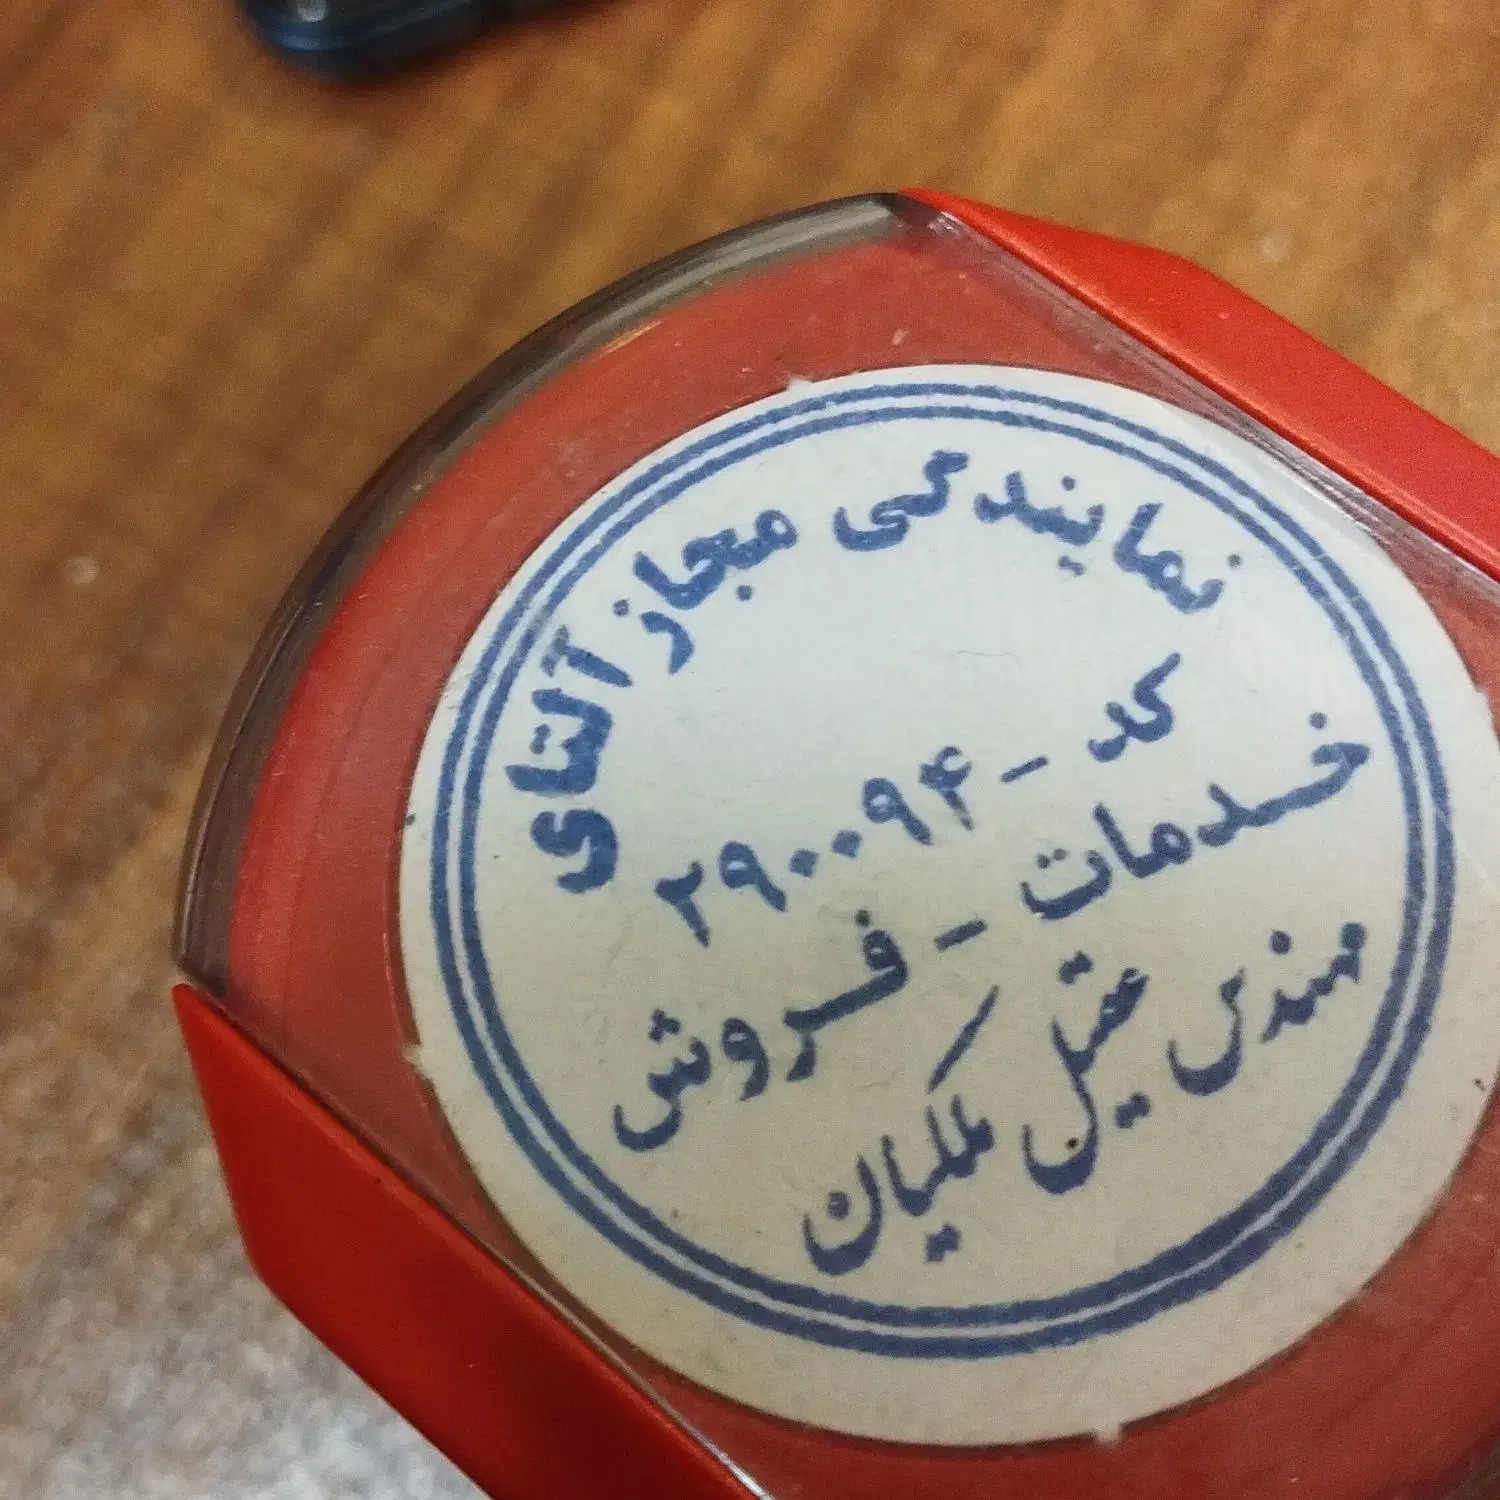 نمایندگی مجاز آلتای
کد - ۲۹۰۰۹۴
خدمات - فروش
مهندس عقیل ملکیان